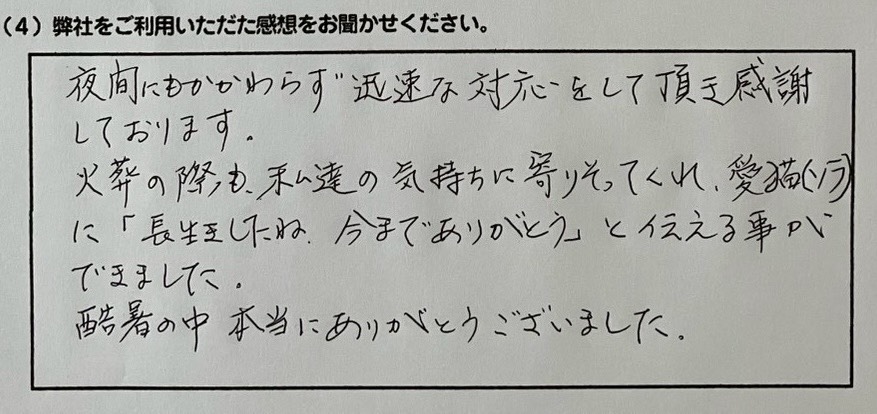 (4) 弊社をご利用いただた感想をお聞かせください。
夜間にもかかわらず迅速な対応をして頂き感謝
しております。
火葬の際も、私達の気持ちに寄りそってくれ、愛猫(ソラ)
に「長生きしたね、今までありがとう」と伝える事が
できました。
酷暑の中 本当にありがとうございました。